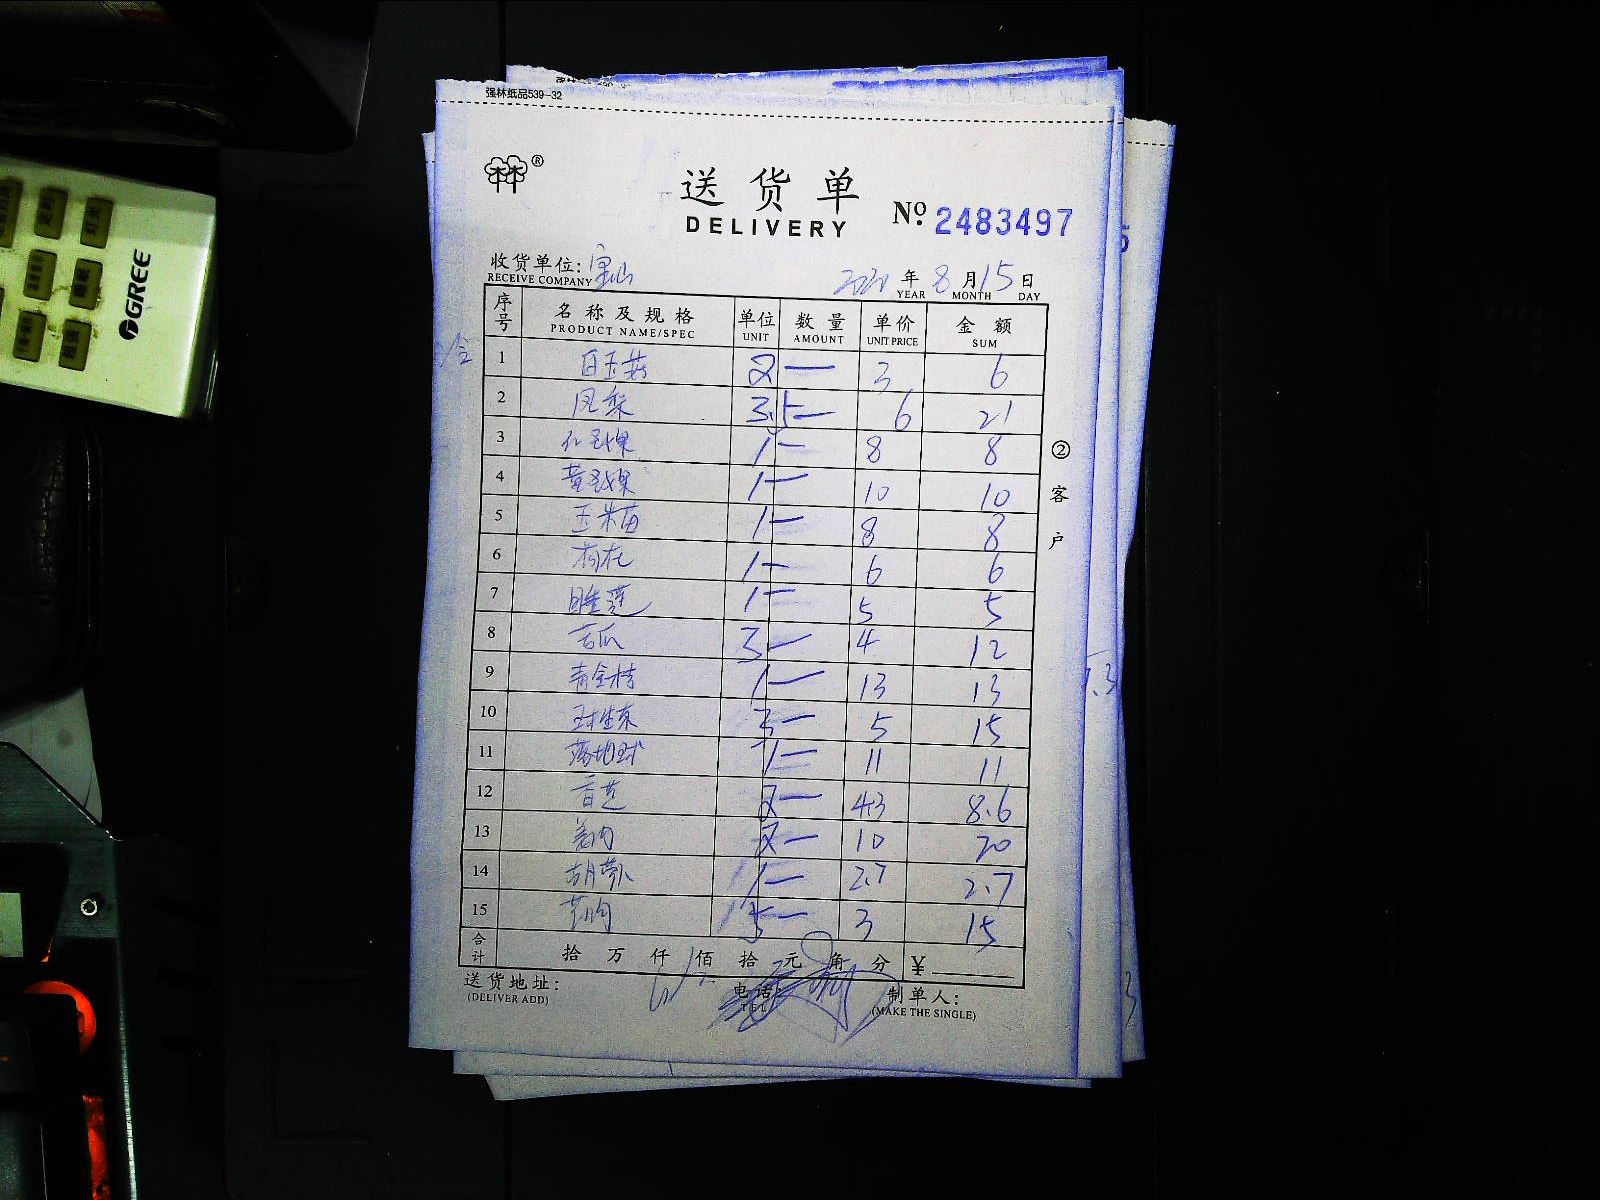 强林纸品539-32
林®
送货单
DELIVERY
№ 2483497
收货单位: 宝山
RECEIVE COMPANY
年 8 月 15 日
YEAR MONTH DAY
序号 名称及规格 单位 数量 单价 金额
PRODUCT NAME/SPEC UNIT AMOUNT UNIT PRICE SUM
1 白玉菇 2 — 3 6
2 凤梨 3.5 — 6 21
3 1 — 8 8
4 黄 1 — 10 10
5 玉米苗 1 — 8 8
6 1 — 6 6
7 睡莲 1 — 5 5
8 苦瓜 3 — 4 12
9 青金桔 1 — 13 13
10 球生菜 3 — 5 15
11 落地球 1 — 11 11
12 2 — 4.3 8.6
13 姜肉 2 — 10 20
14 胡萝卜 1 — 2.7 2.7
15 5 — 3 15
合计 拾 万 仟 佰 拾 元 角 分 ¥
② 客户
送货地址:
(DELIVER ADD)
电话:
TEL
制单人:
(MAKE THE SINGLE)
GREE